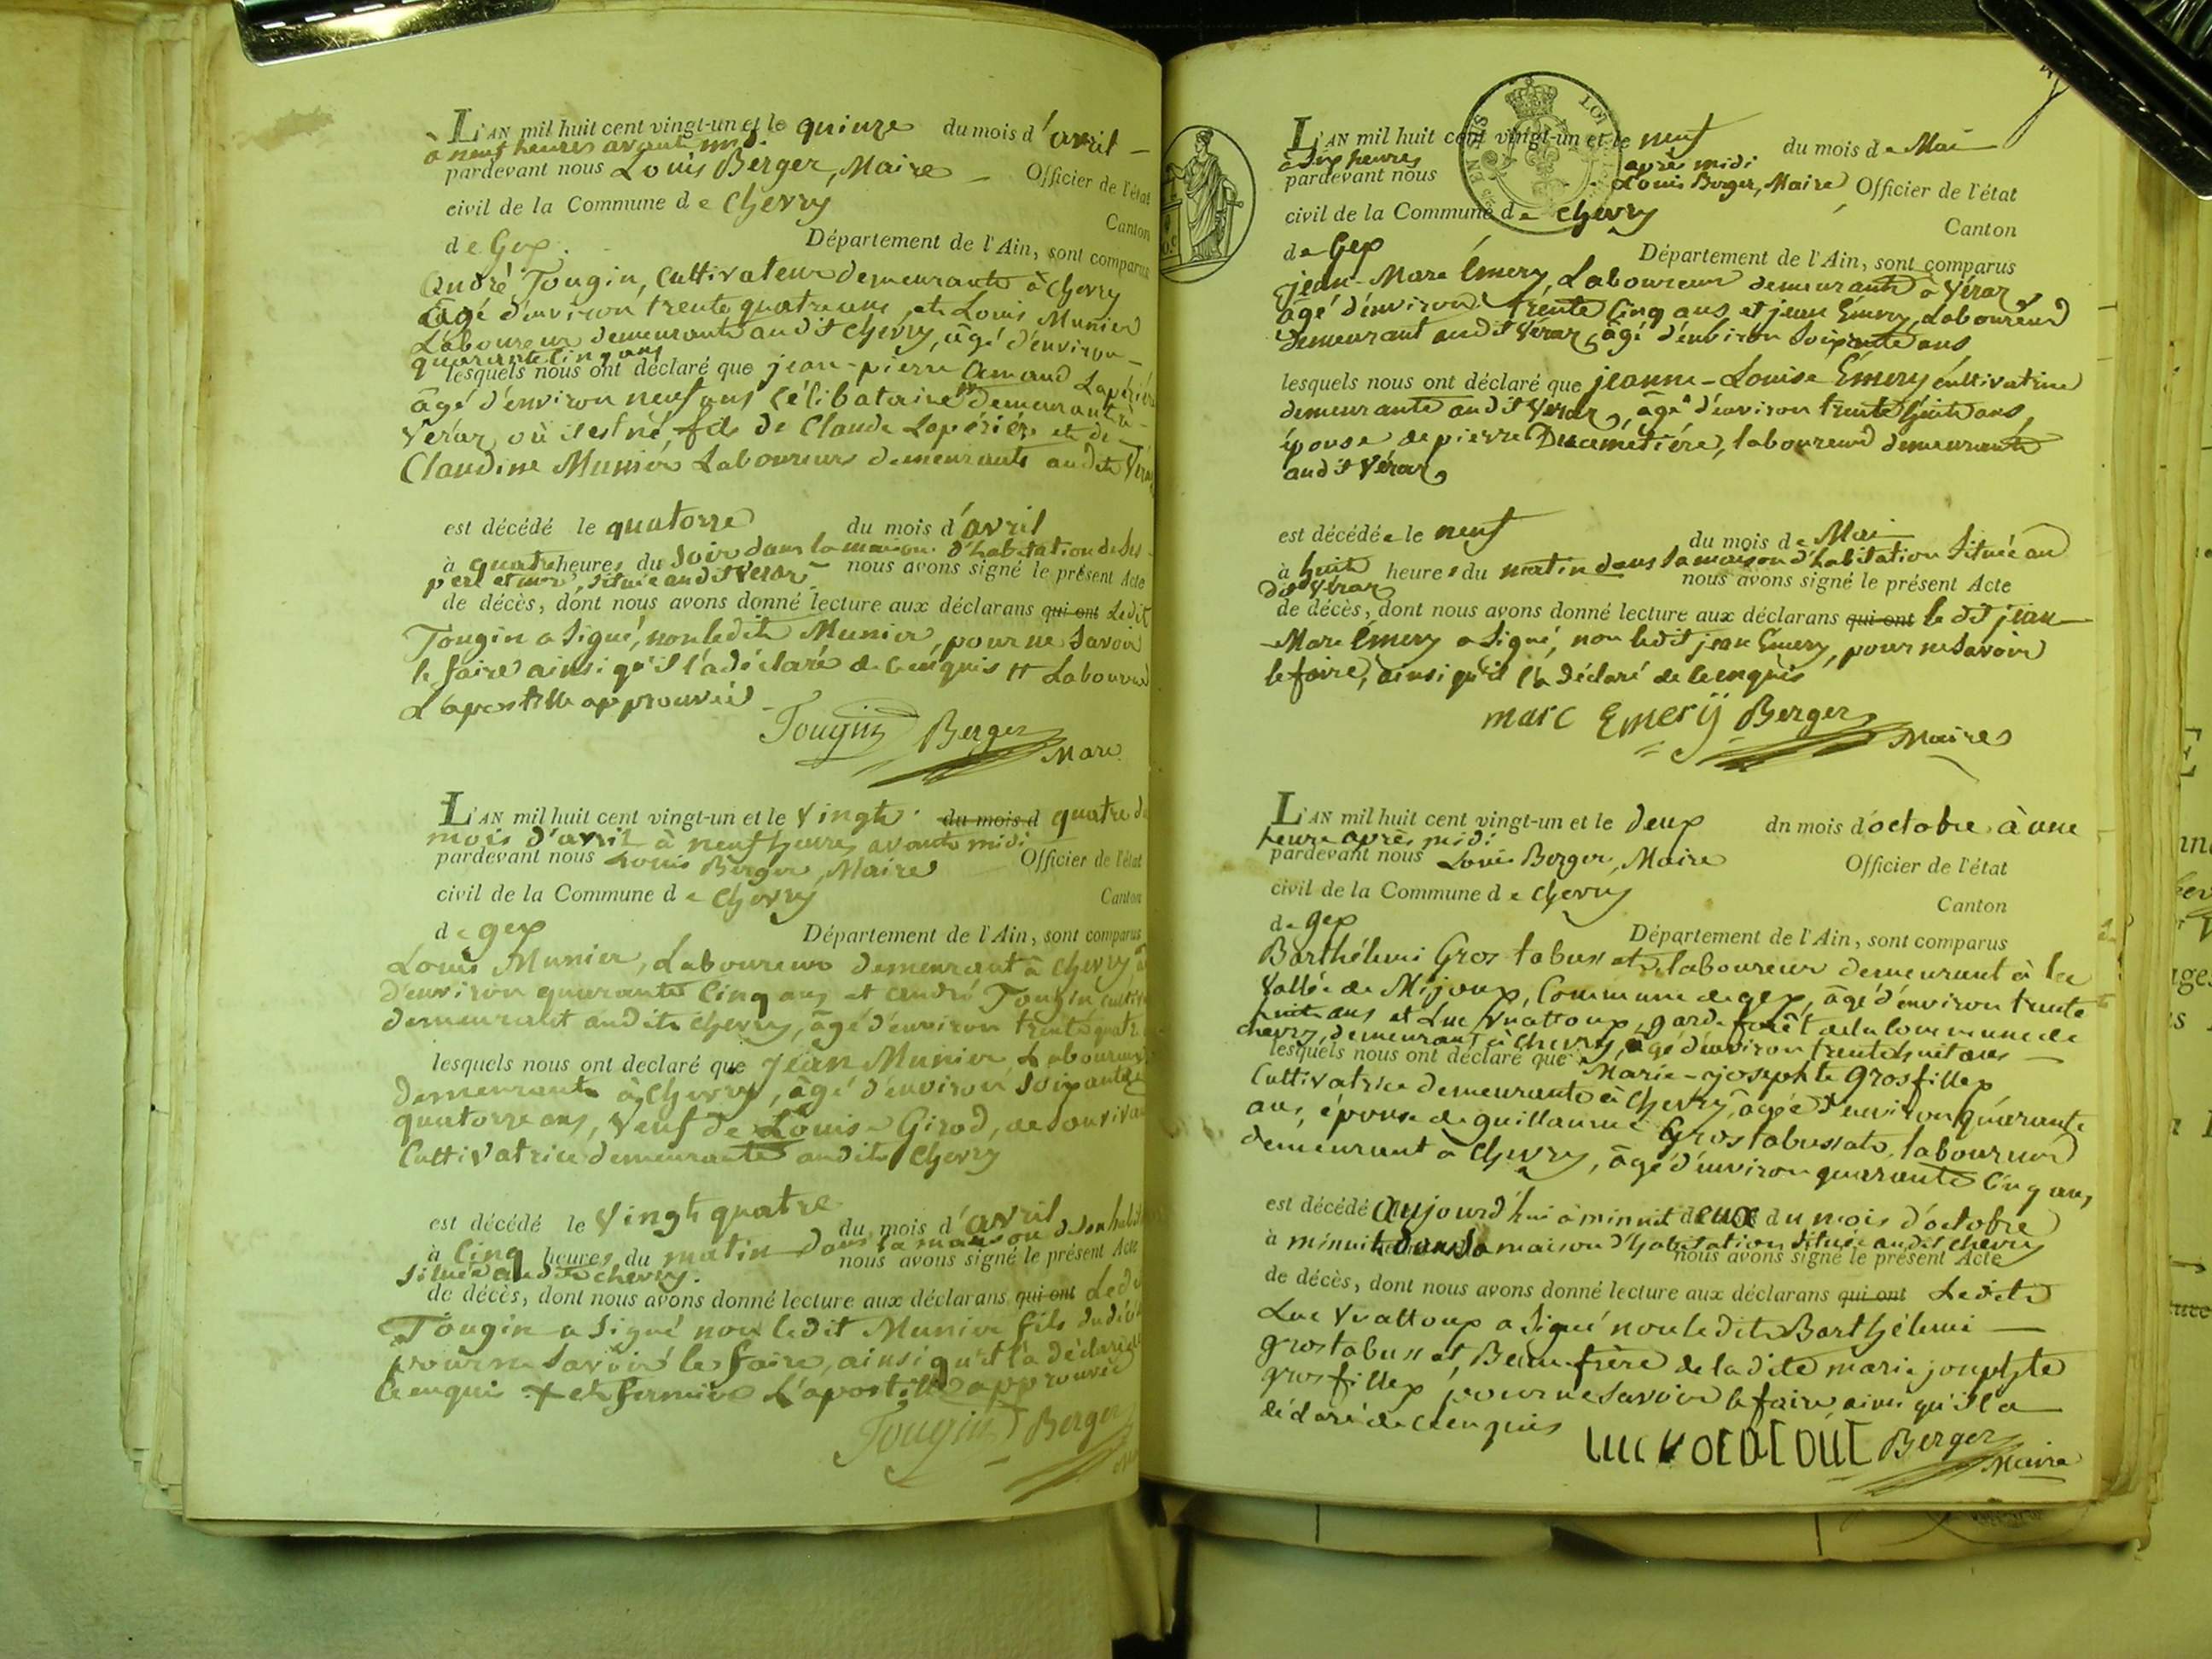 L'AN mil huit cent vingt-un et le quinze du mois d'avril
à neuf heures avant midi.
pardevant nous Louis Berger, Maire Officier de l'état
civil de la Commune de Chevry Canton
de Gex. Département de l'Ain, sont comparus
André Tougin, Cultivateur demeurant à Chevry
âgé d'environ trente quatre ans, et Louis Munier
Laboureur demeurant audit Chevry, âgé d'environ
quarante cinq ans
lesquels nous ont déclaré que jean-pierre Amand Lapérière
âgé d'environ neuf ans Célibataire demeurant à
Verar, où il est né, fils de Claude Lapérière et de
Claudine Munier Laboureurs demeurants audit Verar
est décédé le quatorze du mois d'avril
à quatre heures du Soir dans la maison d'habitation de ses
père et mère, située audit Verar nous avons signé le présent Acte
de décès, dont nous avons donné lecture aux déclarans qui ont Ledit
Tougin a Signé, non ledit Munier, pour ne Savoir
le faire ainsi qu'il l'a déclaré de ce enquis ++ Laboureur
L'apostille approuvée
Tougin Berger
Maire
L'AN mil huit cent vingt-un et le Vingt du mois d quatre du
mois d'avril à neuf heures avant midi
pardevant nous Louis Berger, Maire Officier de l'état
civil de la Commune de Chevry Canton
de gex Département de l'Ain, sont comparus
Louis Munier, Laboureur demeurant à Chevry
d'environ quarante Cinq ans et André Tougin
demeurant audit Chevry, âgé d'environ trente quatre
lesquels nous ont declaré que Jean Munier Laboureur
demeurant à Chevry, âgé d'environ Soixante
quatorze ans, Veuf de Louise Girod, de Son vivant
Cultivatrice demeurante audit Chevry
est décédé le Vingt quatre du mois d'avril
à Cinq heures du matin dans la maison
Située audit Chevry. nous avons signé le présent Acte
de décès, dont nous avons donné lecture aux déclarans qui ont Ledit
Tougin a Signé non ledit Munier fils
pour ne Savoir le faire, ainsi qu'il l'a déclaré
L'apostille approuvée
Tougin Berger
L'AN mil huit cent vingt-un et le neuf du mois de Mai
à Six heures après midi
pardevant nous Louis Berger, Maire Officier de l'état
civil de la Commune de Chevry Canton
de Gex Département de l'Ain, sont comparus
jean-Marc Émery, Laboureur demeurant à Vérar
âgé d'environ trente Cinq ans, et jean Émery, Laboureur
demeurant audit Verar, âgé d'environ Soixante ans
lesquels nous ont déclaré que jeanne-Louise Émery cultivatrice
demeurante audit Verar, âgée d'environ trente huit ans,
épouse de pierre Ducimetiére, laboureur demeurant
audit Vérar,
est décédée le neuf du mois de Mai
à huit heures du matin dans la maison d'habitation Située au
dit Vérar nous avons signé le présent Acte
de décès, dont nous avons donné lecture aux déclarans qui ont le dit jean
-Marc Émery a Signé, non ledit jean Emery, pour ne Savoir
le faire, ainsi qu'il l'a déclaré de ce enquis
marc Emerÿ Berger
Maire
L'AN mil huit cent vingt-un et le deux dn mois d'octobre à une
heure après midi
pardevant nous Louis Berger, Maire Officier de l'état
civil de la Commune de Chevry Canton
de gex Département de l'Ain, sont comparus
Barthélemi Grostabussiat, laboureur demeurant à la
Vallée de Mijoux, Commune de gex, âgé d'environ trente
huit ans et Luc Vuattoux, garde forêt de la Commune de
Chevry, demeurant à Chevry, âgé d'environ trente huit ans
lesquels nous ont déclaré que Marie-josephte Grosfillex
Cultivatrice demeurante à Chevry, âgée d'environ quarante
ans, épouse de guillaume Grostabussiat, laboureur
demeurant à Chevry, âgé d'environ quarante Cinq ans,
est décédé aujourd'hui à minuit deux du mois d'octobre
à minuit dans la maison d'habitation Située audit Chevry
nous avons signé le présent Acte
de décès, dont nous avons donné lecture aux déclarans qui ont Ledit
Luc Vuattoux a Signé non le dit Barthélemi
grostabussiat, Beau-frère de la dite marie josephte
grosfillex pour ne Savoir le faire, ainsi qu'il a
déclaré de ce enquis
Berger
Maire